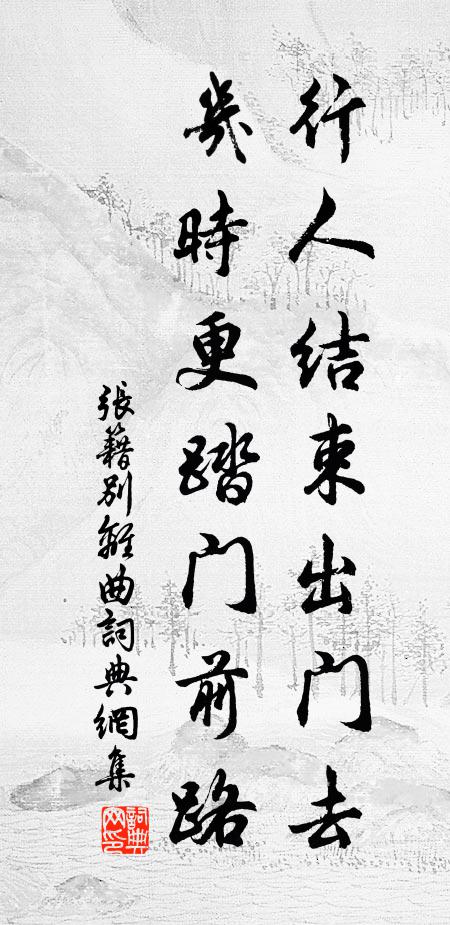 行人结束出门去
几時更踏门前路
張籍别離曲詞典網集
詞典网印